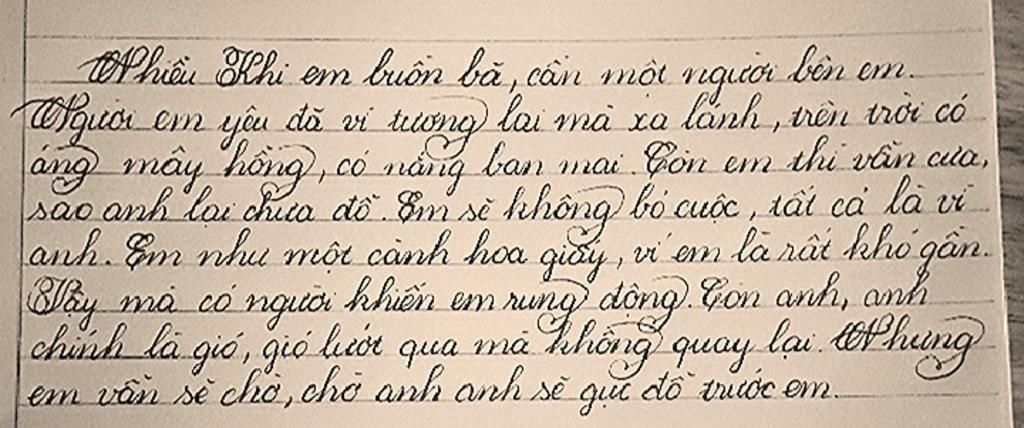 Nhiều Khi em buồn bã, cần một người bên em.
Người em yêu đã vì tương lai mà xa lánh, trên trời có
áng mây hồng, có nắng ban mai. Còn em thì vẫn cưa,
sao anh lại chưa đổ. Em sẽ không bỏ cuộc, tất cả là vì
anh. Em như một cành hoa giấy, vì em là rất khó gần.
Vậy mà có người khiến em rung động. Còn anh, anh
chính là gió, gió lướt qua mà không quay lại. Nhưng
em vẫn sẽ chờ, chờ anh anh sẽ gục đổ trước em.